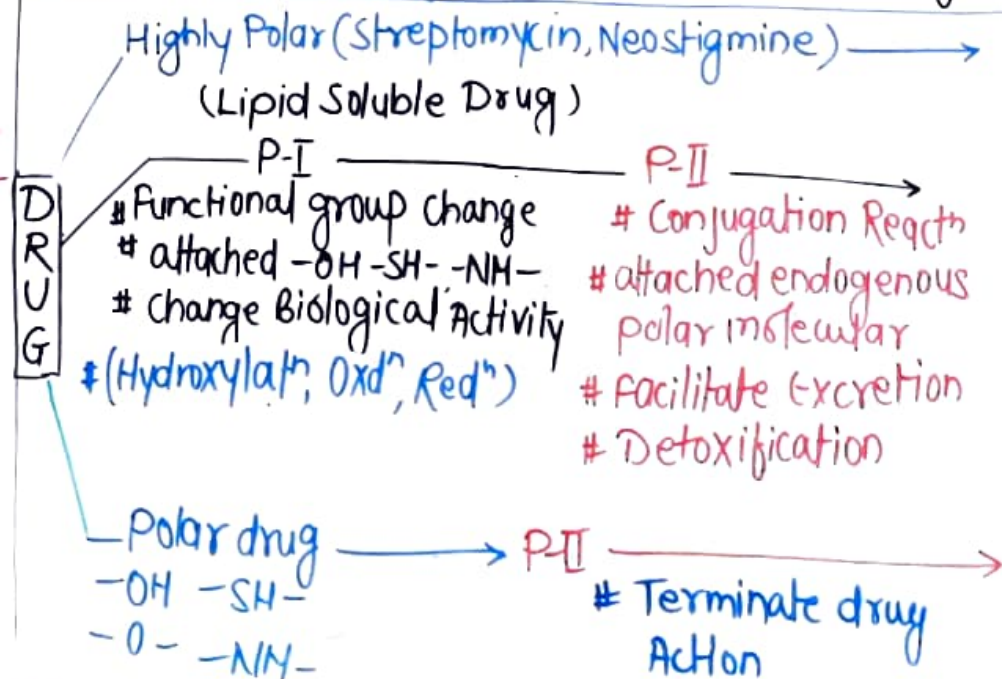 Highly Polar (Streptomycin, Neostigmine)
(Lipid Soluble Drug)
P-I
P-II
DRUG
# Functional group change
# attached -OH -SH- -NH-
# change Biological Activity
# (Hydroxylatⁿ, Oxdⁿ, Redⁿ)
# Conjugation Reactⁿ
# attached endogenous
polar molecular
# Facilitate Excretion
# Detoxification
Polar drug
P-II
-OH -SH-
-O- -NH-
# Terminate drug
Action